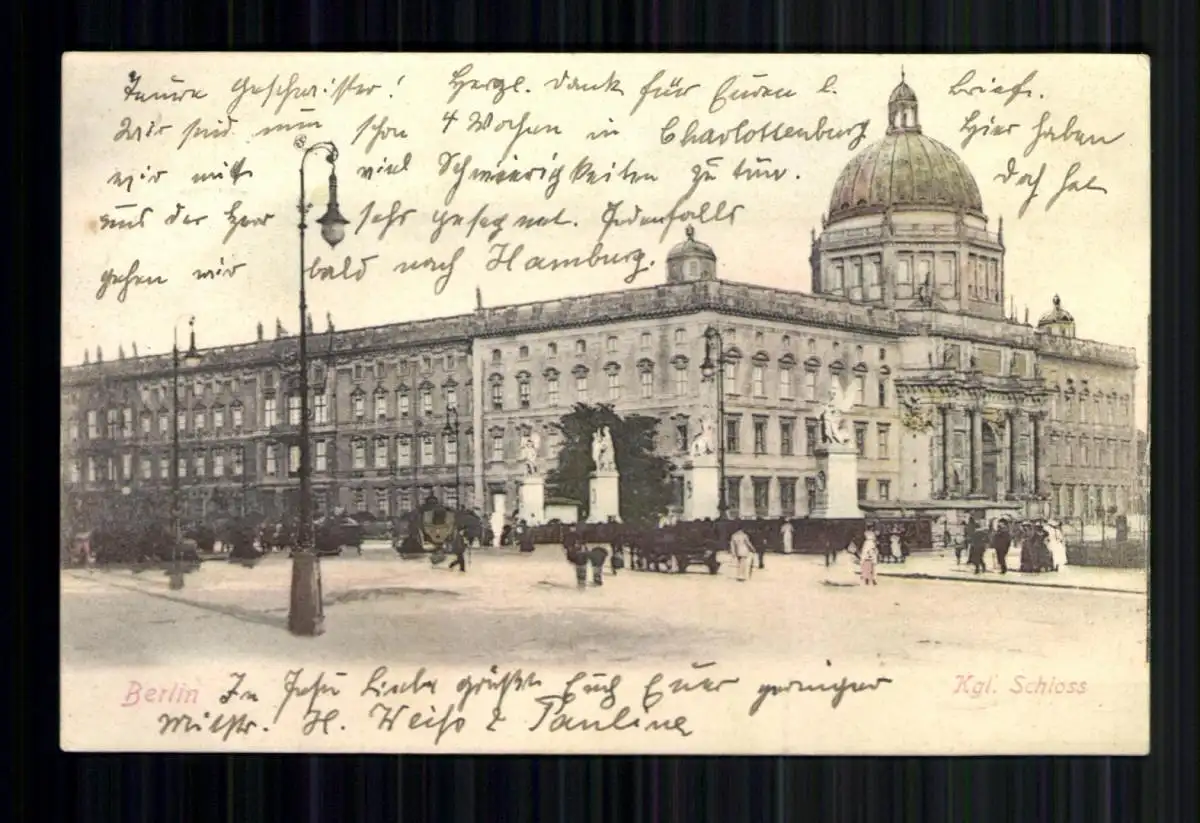 Teure Geschwister! Herzl. Dank für Euren l. Brief.
Wir sind nun schon 4 Wochen in Charlottenburg. Hier haben
wir mit viel Schwierigkeiten zu tun. Doch hat
uns der Herr sehr gesegnet. Jedenfalls
gehen wir bald nach Hamburg.
In Jesu Liebe grüßt Euch Euer geringer
Mitstr. H. Weiß & Pauline
Berlin
Kgl. Schloss